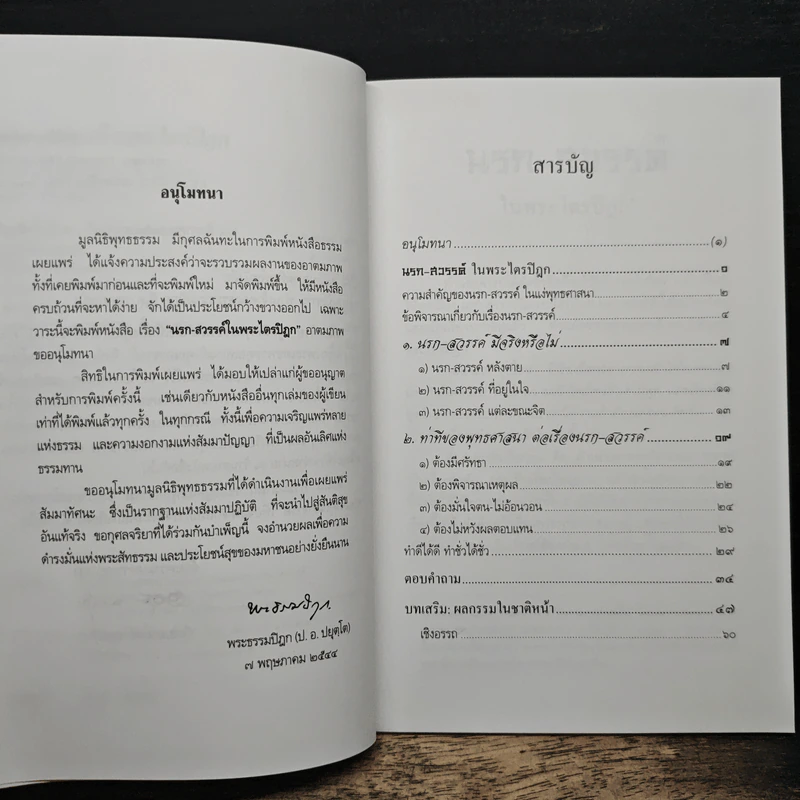 อนุโมทนา
มูลนิธิพุทธธรรม มีกุศลฉันทะในการพิมพ์หนังสือธรรม
เผยแพร่ ได้แจ้งความประสงค์ว่าจะรวบรวมผลงานของอาตมภาพ
ทั้งที่เคยพิมพ์มาก่อนและที่จะพิมพ์ใหม่ มาจัดพิมพ์ขึ้น ให้มีหนังสือ
ครบถ้วนที่จะหาได้ง่าย จักได้เป็นประโยชน์กว้างขวางออกไป เฉพาะ
วาระนี้จะพิมพ์หนังสือ เรื่อง “นรก-สวรรค์ในพระไตรปิฎก” อาตมภาพ
ขออนุโมทนา
สิทธิในการพิมพ์เผยแพร่ ได้มอบให้เปล่าแก่ผู้ขออนุญาต
สำหรับการพิมพ์ครั้งนี้ เช่นเดียวกับหนังสืออื่นทุกเล่มของผู้เขียน
เท่าที่ได้พิมพ์แล้วทุกครั้ง ในทุกกรณี ทั้งนี้เพื่อความเจริญแพร่หลาย
แห่งธรรม และความงอกงามแห่งสัมมาปัญญา ที่เป็นผลอันเลิศแห่ง
ธรรมทาน
ขออนุโมทนามูลนิธิพุทธธรรมที่ได้ดำเนินงานเพื่อเผยแพร่
สัมมาทัศนะ ซึ่งเป็นรากฐานแห่งสัมมาปฏิบัติ ที่จะนำไปสู่สันติสุข
อันแท้จริง ขอกุศลจริยาที่ได้ร่วมกันบำเพ็ญนี้ จงอำนวยผลเพื่อความ
ดำรงมั่นแห่งพระสัทธรรม และประโยชน์สุขของมหาชนอย่างยั่งยืนนาน
พระธรรมปิฎก
พระธรรมปิฎก (ป. อ. ปยุตฺโต)
๗ พฤษภาคม ๒๕๔๔
สารบัญ
อนุโมทนา (๑)
นรก-สวรรค์ ในพระไตรปิฎก ๑
ความสำคัญของนรก-สวรรค์ ในแง่พุทธศาสนา ๒
ข้อพิจารณาเกี่ยวกับเรื่องนรก-สวรรค์ ๔
๑. นรก-สวรรค์ มีจริงหรือไม่ ๗
๑) นรก-สวรรค์ หลังตาย ๗
๒) นรก-สวรรค์ ที่อยู่ในใจ ๑๑
๓) นรก-สวรรค์ แต่ละขณะจิต ๑๓
๒. ท่าทีของพุทธศาสนา ต่อเรื่องนรก-สวรรค์ ๑๗
๑) ต้องมีศรัทธา ๑๙
๒) ต้องพิจารณาเหตุผล ๒๒
๓) ต้องมั่นใจตน-ไม่อ้อนวอน ๒๔
๔) ต้องไม่หวังผลตอบแทน ๒๖
ทำดีได้ดี ทำชั่วได้ชั่ว ๒๙
ตอบคำถาม ๓๔
บทเสริม: ผลกรรมในชาติหน้า ๔๗
เชิงอรรถ ๖๐